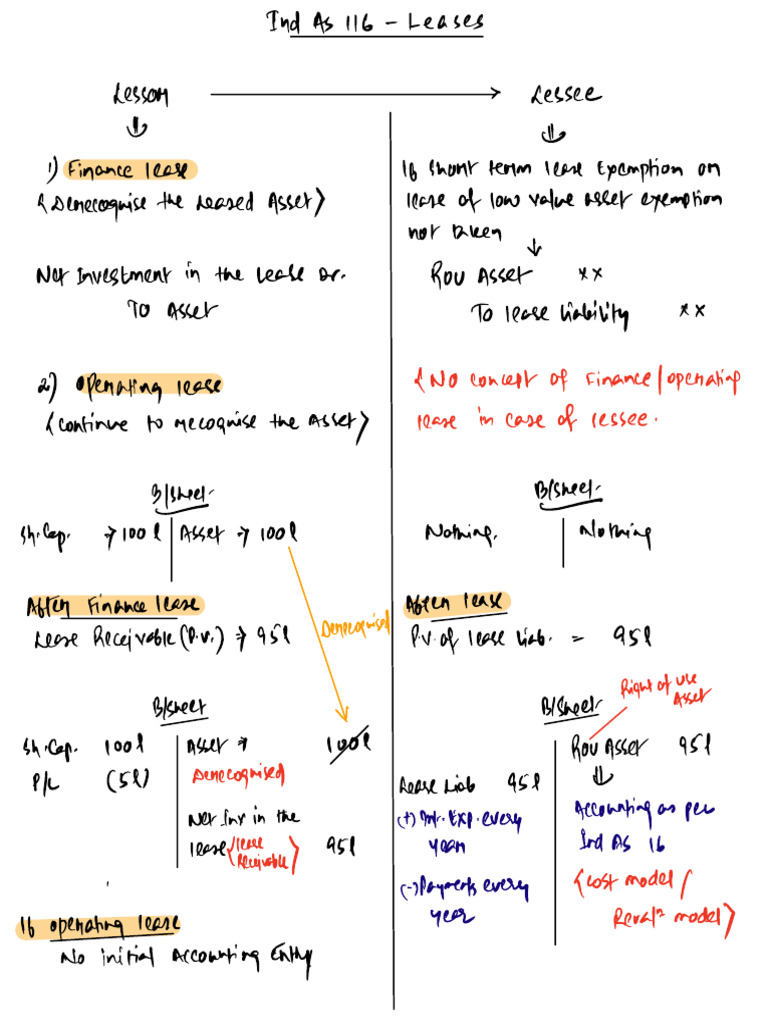 Ind As 116 - Leases
Lessor → Lessee
1) Finance lease
{Derecognise the Leased Asset}
Net Investment in the Lease Dr.
To Asset
2) Operating lease
{continue to recognise the Asset}
B/Sheet
Sh. Cap. → 100 l Asset → 100 l
After Finance lease
Lease Receivable (P.V.) → 95 l
Derecognised
B/Sheet
Sh. Cap. 100 l Asset → 100 l
P/L (5 l) Derecognised
Net Inv in the
lease {lease Receivable} 95 l
If operating lease
No initial Accounting Entry
If short term lease exemption or
lease of low value asset exemption
not taken
ROU Asset xx
To lease liability xx
{No concept of Finance/operating
lease in case of lessee.
B/Sheet
Nothing. Nothing
After lease
P.V. of lease Liab. = 95 l
Right of use
Asset
B/Sheet
ROU Asset 95 l
Lease Liab 95 l
(+) Int. Exp. every
year
(-) Payments every
year
Accounting as per
Ind As 16
{cost model/
Revalⁿ model}